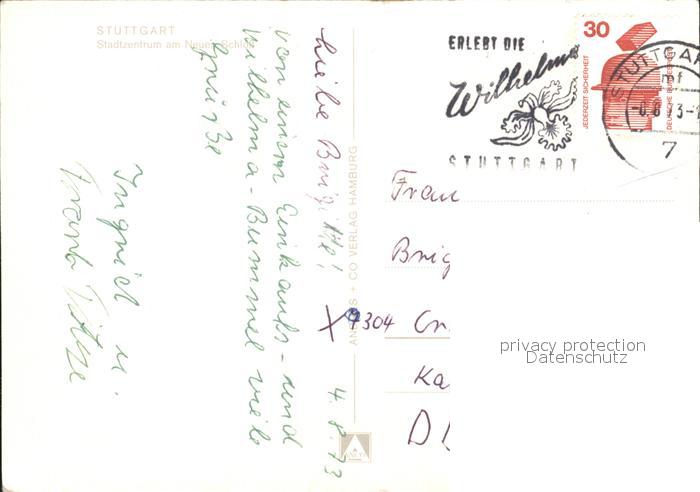 STUTTGART
Stadtzentrum am Neuen Schloß
Liebe Brigitte!
4.8.73
von einem Einkaufs- und
Wilhelma-Bummel viele
Grüße
Ingrid u.
Frank
ANDRES + CO VERLAG HAMBURG
ERLEBT DIE
Wilhelma
STUTTGART
30
JEDERZEIT SICHERHEIT
DEUTSCHE BUNDESPOST
STUTTGAR
mf
-6.8.73-1
7
Frau
Brig
7304
Ka
privacy protection
Datenschutz